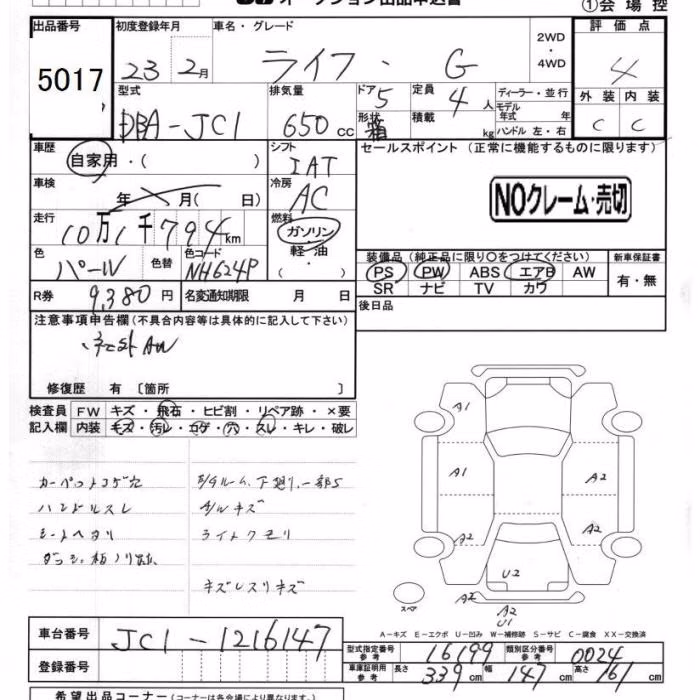 オークション出品申込書
①会場控
出品番号 初度登録年月 車名・グレード 評価点
5017 23 2月 ライフ・G 2WD・4WD 4
型式 排気量 ドア 定員 ディーラー・並行 外装 内装
DBA-JC1 650cc 5 4人 モデル年式 年 C C
形状 箱 積載 kg ハンドル 左・右
車歴 シフト セールスポイント (正常に機能するものに限ります)
自家用・( ) IAT
車検 冷房
年 月( 日) AC NOクレーム・売切
走行 燃料
10万1千794km ガソリン・軽油・( )
色 色替 色コード 装備品(純正品に限り〇をつけてください) 新車保証書
パールW NH624P PS PW ABS エアB AW 有・無
SR ナビ TV カワ
R券 9,380円 名変通知期限 月 日 後日品
注意事項申告欄(不具合内容等は具体的に記入して下さい)
社外AW
修復歴 有〔箇所 〕
検査員 FW キズ・飛石・ヒビ割・リペア跡・×要
記入欄 内装 キズ・汚レ・コゲ・穴・スレ・キレ・破レ
カーペットコゲ穴 下廻リ、一部S
ハンドルスレ キズ
シートヘタリ ライトクモリ
キズレスリキズ
A1
A1 A2
A2 A2
U2
スペア A2 A2
U1
A-キズ E-エクボ U-凹み W-補修跡 S-サビ C-腐食 XX-交換済
車台番号 JC1-1216147
型式指定番号 参考 16199 類別区分番号 参考 0024
登録番号 車庫証明用 参考 長さ 339cm 幅 147cm 高さ 161cm
希望出品コーナー(コーナーは各会場により異なります)